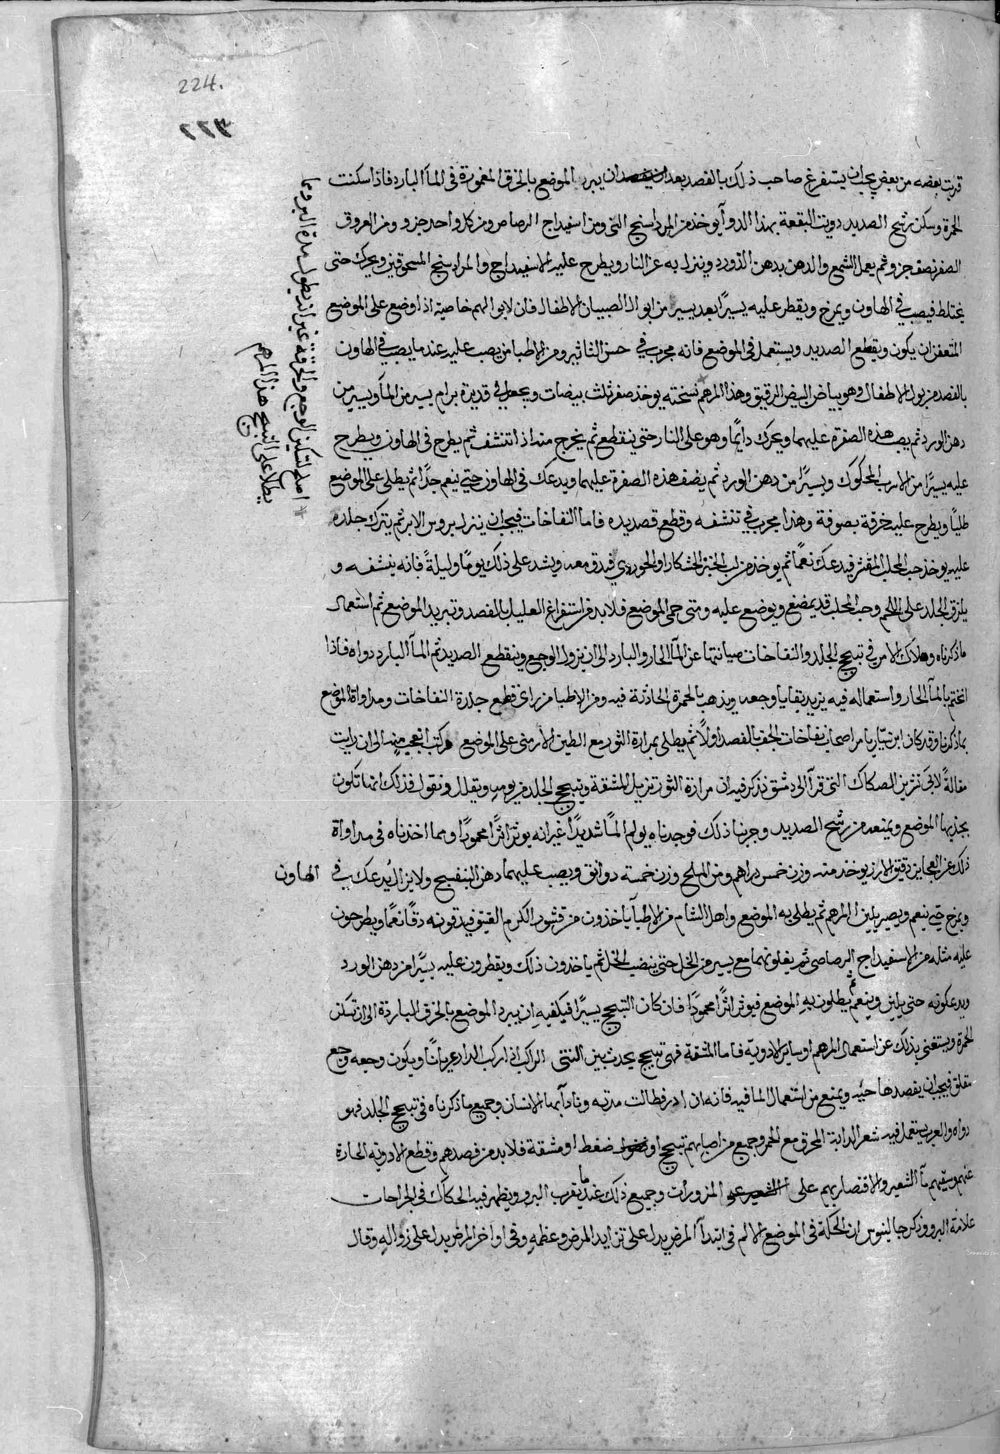 224.
٢٢٣
قربت بعضه من بعض يجب ان يستفرغ صاحب ذلك بالفصد بعد ان يبرد الموضع بالخرق المغموزة في المآ البارد فاذا سكنت
الحمرة وسكن رشح الصديد دويت البقعة بهذا الدوآ يوخذ من المرداسنج الني ومن اسفيداج الرصاص من كل واحد جزو ومن العروق
الصفر نصف جزو ثم يعمل الشمع والدهن بدهن الورد وينزل به عن النار ويطرح عليه الاسفيداج والمرداسنج المسحوقين ويحرك حتى
يختلط فيصب في الهاون ويمزج ويقطر عليه يسيرًا بعد يسير من ابوال الصبيان الاطفال فان لابوالهم خاصية اذا وضع على الموضع
المتعفن ان يكون ويقطع الصديد ويستعمل في الموضع فانه مجرب في حسن التاثير ومن الاطبا من يصب عليه عند ما يصب في الهاون
بالقصد من بول الاطفال وهو بياض البيض الرقيق وهذا المرهم نسخته يوخذ صفر ثلث بيضات ويجعل في قديرة برام يسير من المآ ويسير من
دهن الورد ثم يصب هذه الصفرة عليهما ويحرك دايمًا وهو على النار حتى ينقطع ثم يخرج منه اذا انتشف ثم يطرح في الهاون ويطرح
عليه يسيرًا من الاسرب المحكوك ويسيرًا من دهن الورد ثم يضف هذه الصفرة عليهما ويدعك في الهاون حتى ينعم جدًا ثم يطلى على الموضع
طليًا ويطرح عليه خرقة بصوفة وهذا مجرب في تنشفه وقطع صديده فاما النفاخات فيجب ان ينزل بروس الابر ثم يترك جلده
عليه يوخذ حب المحلب المقشر فيدعك نعمًا ثم يوخذ من لب الخبز الخشكار او الحوري فيدق معه ويشد على ذلك يومًا وليلةً فانه ينشفه و
يلزق الجلد على اللحم وحب المحلب قد يمضغ ويوضع عليه ومتى حمي الموضع فلا بد من استفراغ العليل بالفصد وتبريد الموضع ثم استعمال
ماذكرناه وملاك الامر في تبجج الجلد والنفاخات صيانتهما عن المآ الحار والبارد الى ان يزول الوجع وينقطع الصديد ثم المآ البارد دواه فاذا
اغتم بالمآ الحار واستعماله فيه يزيد بقايا وجعه ويذهب بالحمرة الحادثة فيه ومن الاطبا من راى قطع جلدة النفاخات ومداواة الموضع
بماذكرنا وقد كان ابن سيار يامر اصحاب نفاخات الخف بالفصد اولًا ثم يطلى بمرارة الثور مع الطين الارمني على الموضع وكنت اتعجب منه الى ان رايت
مقالةً لابي نزين الصكاك التي قرآ الى دمشق نذكر فيه ان مرارة الثور تزيل المشقة وتبجج الجلد في يومين ويقلل ونقول في ذلك انها تكون
بجذبها الموضع ويمنعه من رشح الصديد وجربنا ذلك فوجدناه يولم المًا شديدًا غير انه يوثر اثرًا محمودًا ومما اخذناه في مداواة
ذلك عن العجايز دقيق الارز يوخذ منه وزن خمس دراهم ومن الملح وزن خمسة دوانق ويصب عليهما دهن البنفسج ولا يزال يُدعك في الهاون
ويمزج حتى ينعم ويصير بلين المرهم ثم يطلى به الموضع واهل الشام من الاطبآ ياخذون من قشور الكرم العتيق فيدقونه دقًا نعمًا ويطرحون
عليه مثله من الاسفيداج الرصاصي ثم يغلونهما مع يسير من الخل حتى ينضب الخل ثم ياخذون ذلك ويقطرون عليه يسيرًا من دهن الورد
ويدعكونه حتى يلين وينعم ثم يطلون به الموضع فيوثر اثرًا محمودًا فان كان التبجج يسيرًا فيكفيه ان يبرد الموضع بالخرق الباردة الى ان تسكن
الحمرة ويستغني بذلك عن استعمال المرهم او ساير الادوية فاما المشقة فهي تبجج يحدث بين الراكب اذا ركب الدابة عريانًا ويكون وجعه وجع
مقلق فيجب ان يفصد صاحبه ويمنع من استعمال المآ فيه فانه ان ادر فطالت مدته وتاذا بها الانسان وجميع ماذكرناه في تبجج الجلد فهو
دواه والعرب يستعمل فيه شعر الدابة المحرق مع الخمر وجميع من اصابهم تبجج او ضغط او مشقة فلا بد من فصدهم وقطع الادوية الحارة
عنهم وسقيهم مآ الشعير والاقتصار بهم على المزورات وجميع ذلك عندما يقرب البرو ويظهر فيه الحكاك في الجراحات
علامة البرو وذكر جالينوس ان الحكة في الموضع الالم في ابتدآ المرض يدل على تزايد المرض وعظمه وفي اواخر المرض يدل على زواله وقال
اصلح لتسكين الوجع والحرقة غير انه يطول مدة البرو وما
يطلا على التبجج هذا المرهم